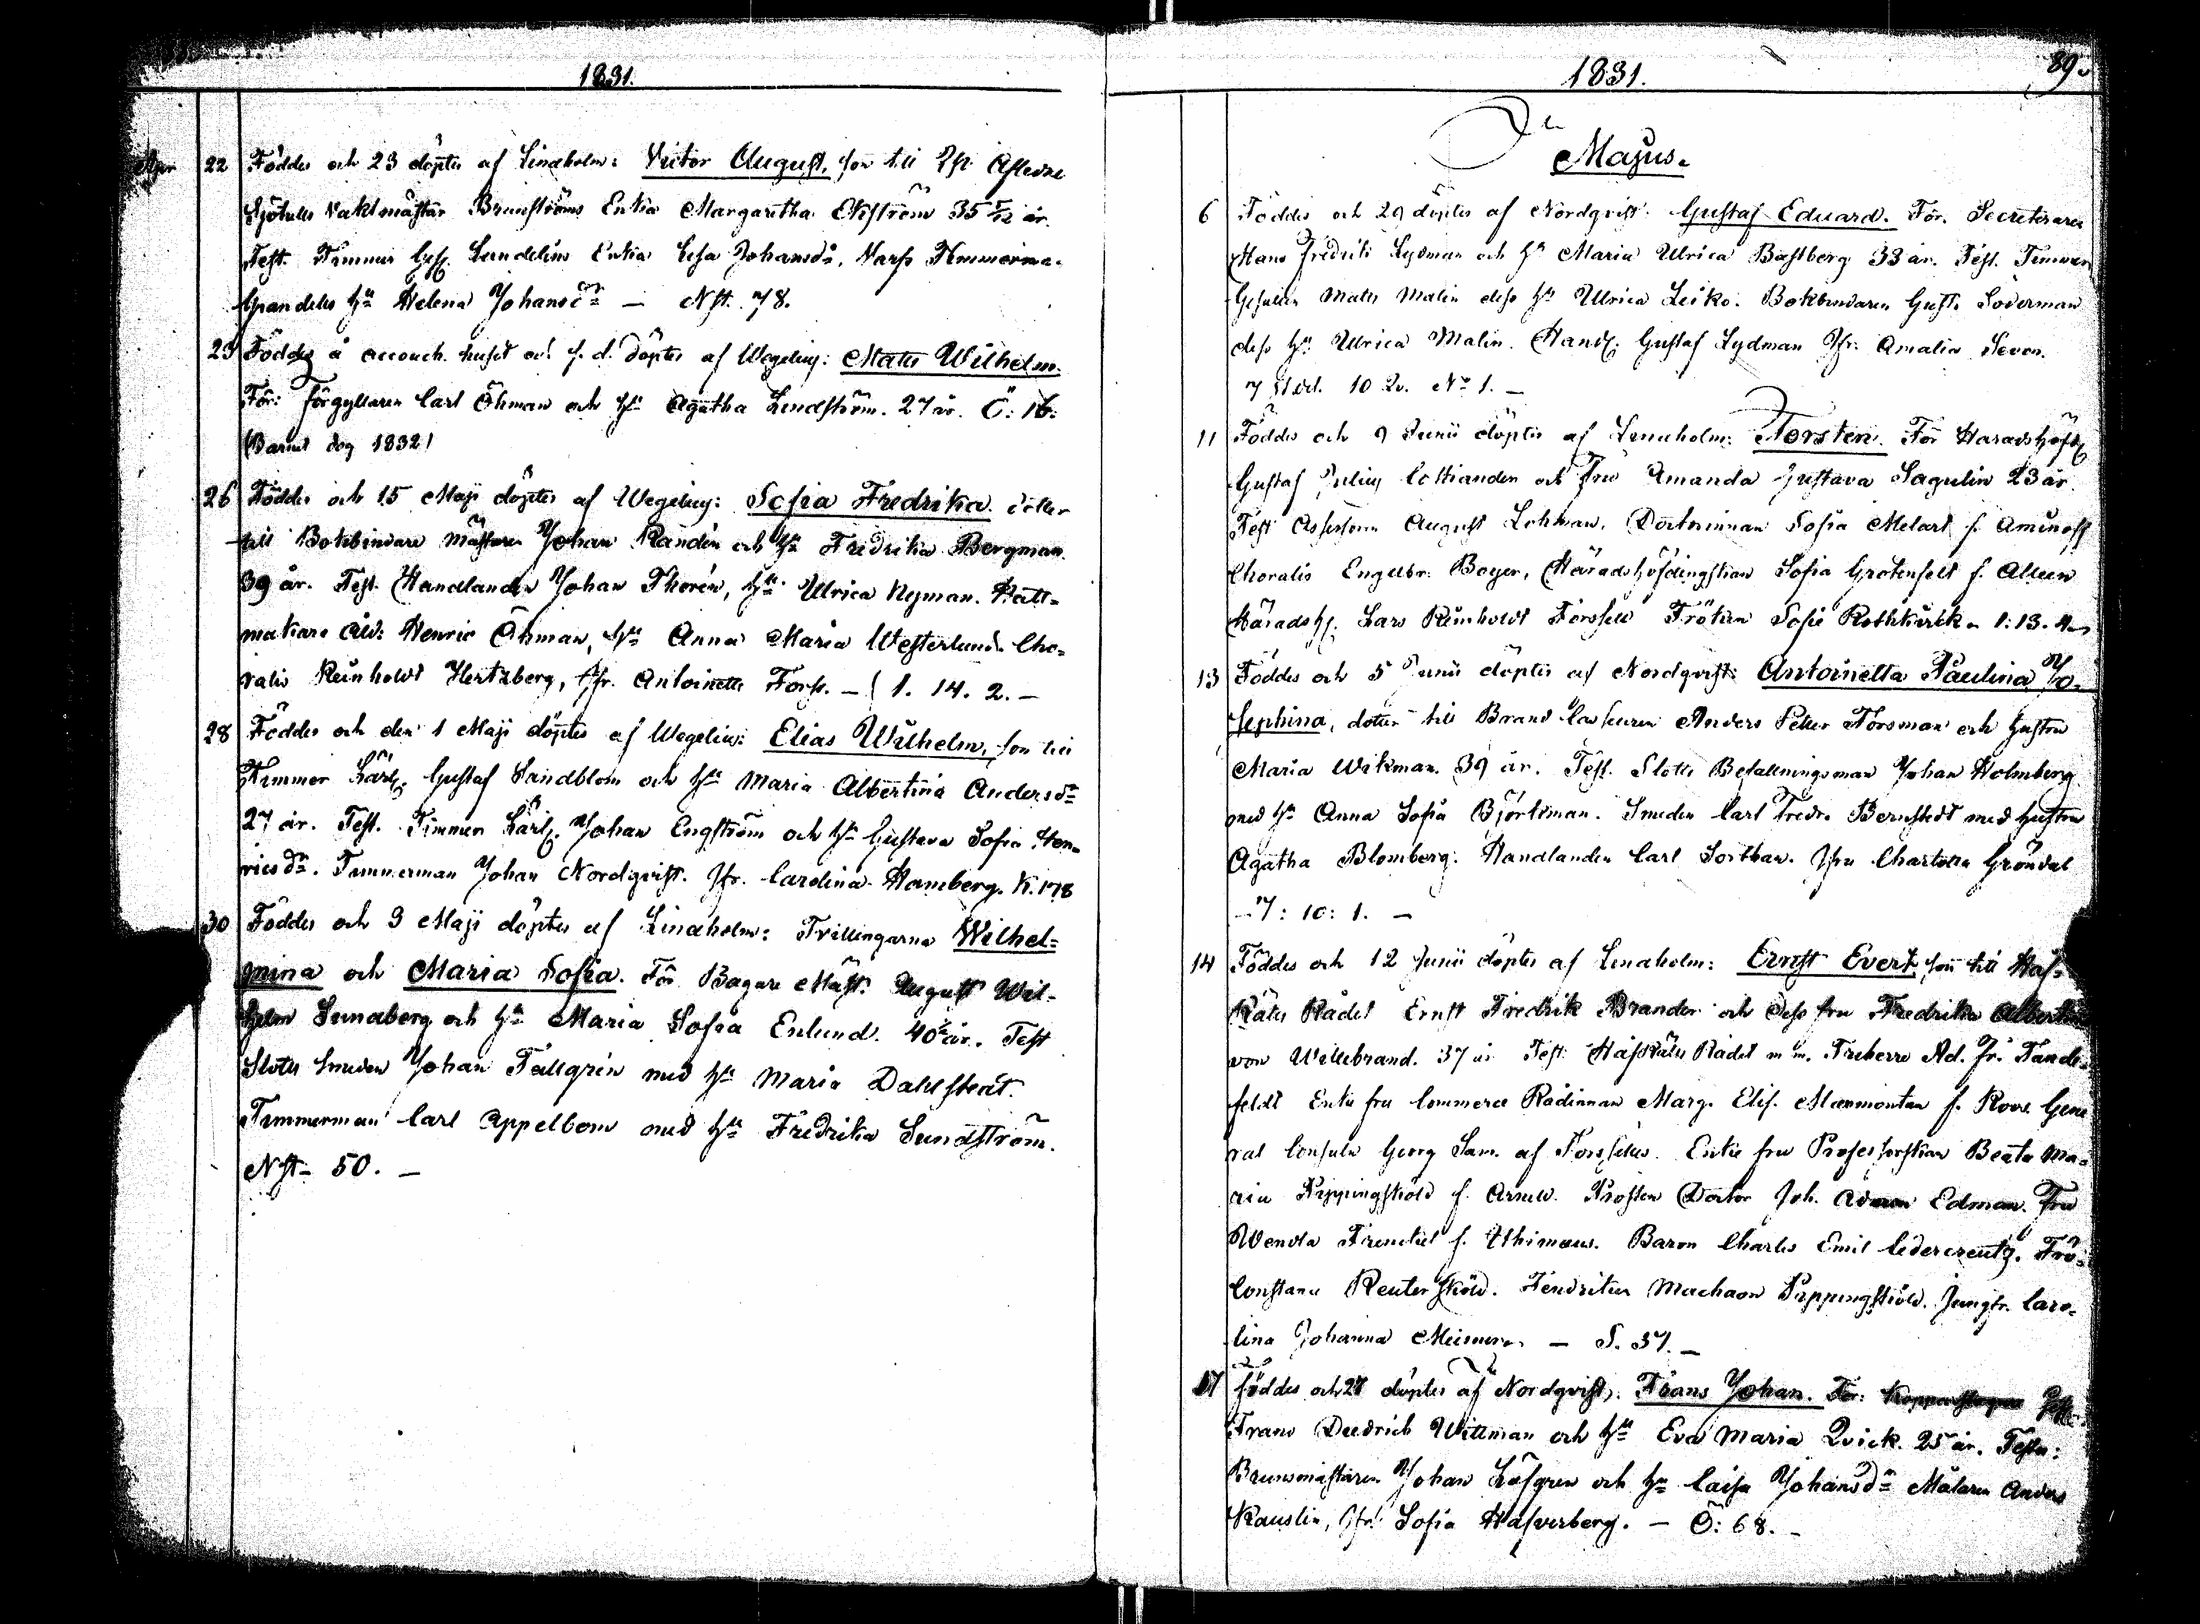 1831.
Apr 22 Föddes och 23 döptes af Lindholm: Victor August, son till
Sjötulls Vaktmästar Brunströms Enkia Margaretha Ekström 35 5/12 år.
Test. Timmer Ges. Lundelins Enkia Lisa Johansdr, Varfs Timmerm.
Grandells hu Helena Johansdr — Nst. 78.
23 Föddes å accouch. huset och s. d. döptes af Wegelius: Mats Wilhelm.
För: Förgyllaren Carl Öhman och hu Agatha Lindström. 27 år. Ö: 16:
(Barnet dog 1832)
26 Föddes och 15 Maji döptes af Wegelius: Sofia Fredrika dotter
till Bokbindare Mästaren Johan Randén och hu Fredrika Bergman
39 år. Test. Handlanden Johan Thorén, hu Ulrica Nyman. Hatt-
makare Åld: Henric Öhman, hu Anna Maria Westerlund. Cho-
ralis Reinholdt Hertzberg, Jfr. Antoinette Forss. — 1. 14. 2. —
28 Föddes och den 1 Maji döptes af Wegelius: Elias Wilhelm, son till
Timmer Lärl. Gustaf Sandblom och hu Maria Albertina Andersdr
27 år. Test. Timmer Lärl. Johan Engström och hu Gustava Sofia Hen-
ricsdr. Timmerman Johan Nordqvist. Jfr. Carolina Hamberg. K. 178
30 Föddes och 3 Maji döptes af Lindholm: Tvillingarna Wilhel-
mina och Maria Sofia. För. Bagare Mäst. August Wil-
helm Sundberg och hu Maria Sofia Enlund. 40 år. Test
Slotts Smeden Johan Tallgrén med hu Maria Dahlstedt.
Timmerman Carl Appelbom med hu Fredrika Sundström.
Nst- 50. —
1831. 89.
Majus.
6 Föddes och 29 döptes af Nordqvist: Gustaf Eduard. För. Secreteraren
Hans Fredrik Lydman och hu Maria Ulrica Bastberg 33 år. Test. Timmer
Gesällen Mats Malin dess hu Ulrica Leiko. Bokbindaren Gust. Söderman
dess hu Ulrica Malin. Handl. Gustaf Lydman Jfr. Amalia Sevon.
7 10 No 1. —
11 Föddes och 9 Junii döptes af Lindholm: Torsten. För Häradshöfd.
Gustaf Julius Cottiander och Fru Amanda Gustava Sagulin 23 år.
Test Assessorn August Lohman, Doctorinnan Sofia Melart f. Aminoff
Choralis Engelbr: Boyer, Häradshöfdingskan Sofia Grotenfelt f.
Häradsh. Lars Reinholdt Forssell Fröken Sofie Rothkirck 1:13.
13 Föddes och 5 Junii döptes af Nordqvist: Antoinetta Paulina Jo-
sephina, dotter till Brand Anders Petter Forsman och hustru
Maria Wikman. 39 år. Test. Slotts Befallningsman Johan Holmberg
med hu Anna Sofia Björkman. Smeden Carl Fredr. Bernstedt med hustru
Agatha Blomberg. Handlanden Carl Jfru Charlotta Gröndal
— 7: 10: 1. —
14 Föddes och 12 Junii döptes af Lindholm: Ernst Evert, son till Hof-
Rätts Rådet Ernst Fredrik Brander och dess fru Fredrika Albertina
von Willebrand. 37 år Test: Hofrätts Rådet m m. Friherre Ad. Fr. Tande-
feldt Enke fru Commerce Rådinnan Marg. Elis. f. Gene
ral Consuln Georg Sam. af Forselles. Enke fru Professorskan Beata Ma-
ria Pippingsköld f. Prosten Doctor Joh. Edman. Fru
Wendla Frenckel f. Baron Charles Emil Cedercreutz. Frö.
Constance Reutersköld. Fendriken Machaon Pippingsköld. Jungfr. Caro-
lina Johanna — S. 37. —
17 föddes och 27 döptes af Nordqvist: Frans Johan. För:
Frans Diedrich Wittman och hu Eva Maria Qvick. 25 år. Test:
Brunsmästaren Johan Löfgren och hu Caisa Johansdr Målaren Anders
Kauslin, Jfr. Sofia Hafverberg. — Ö: 68. —